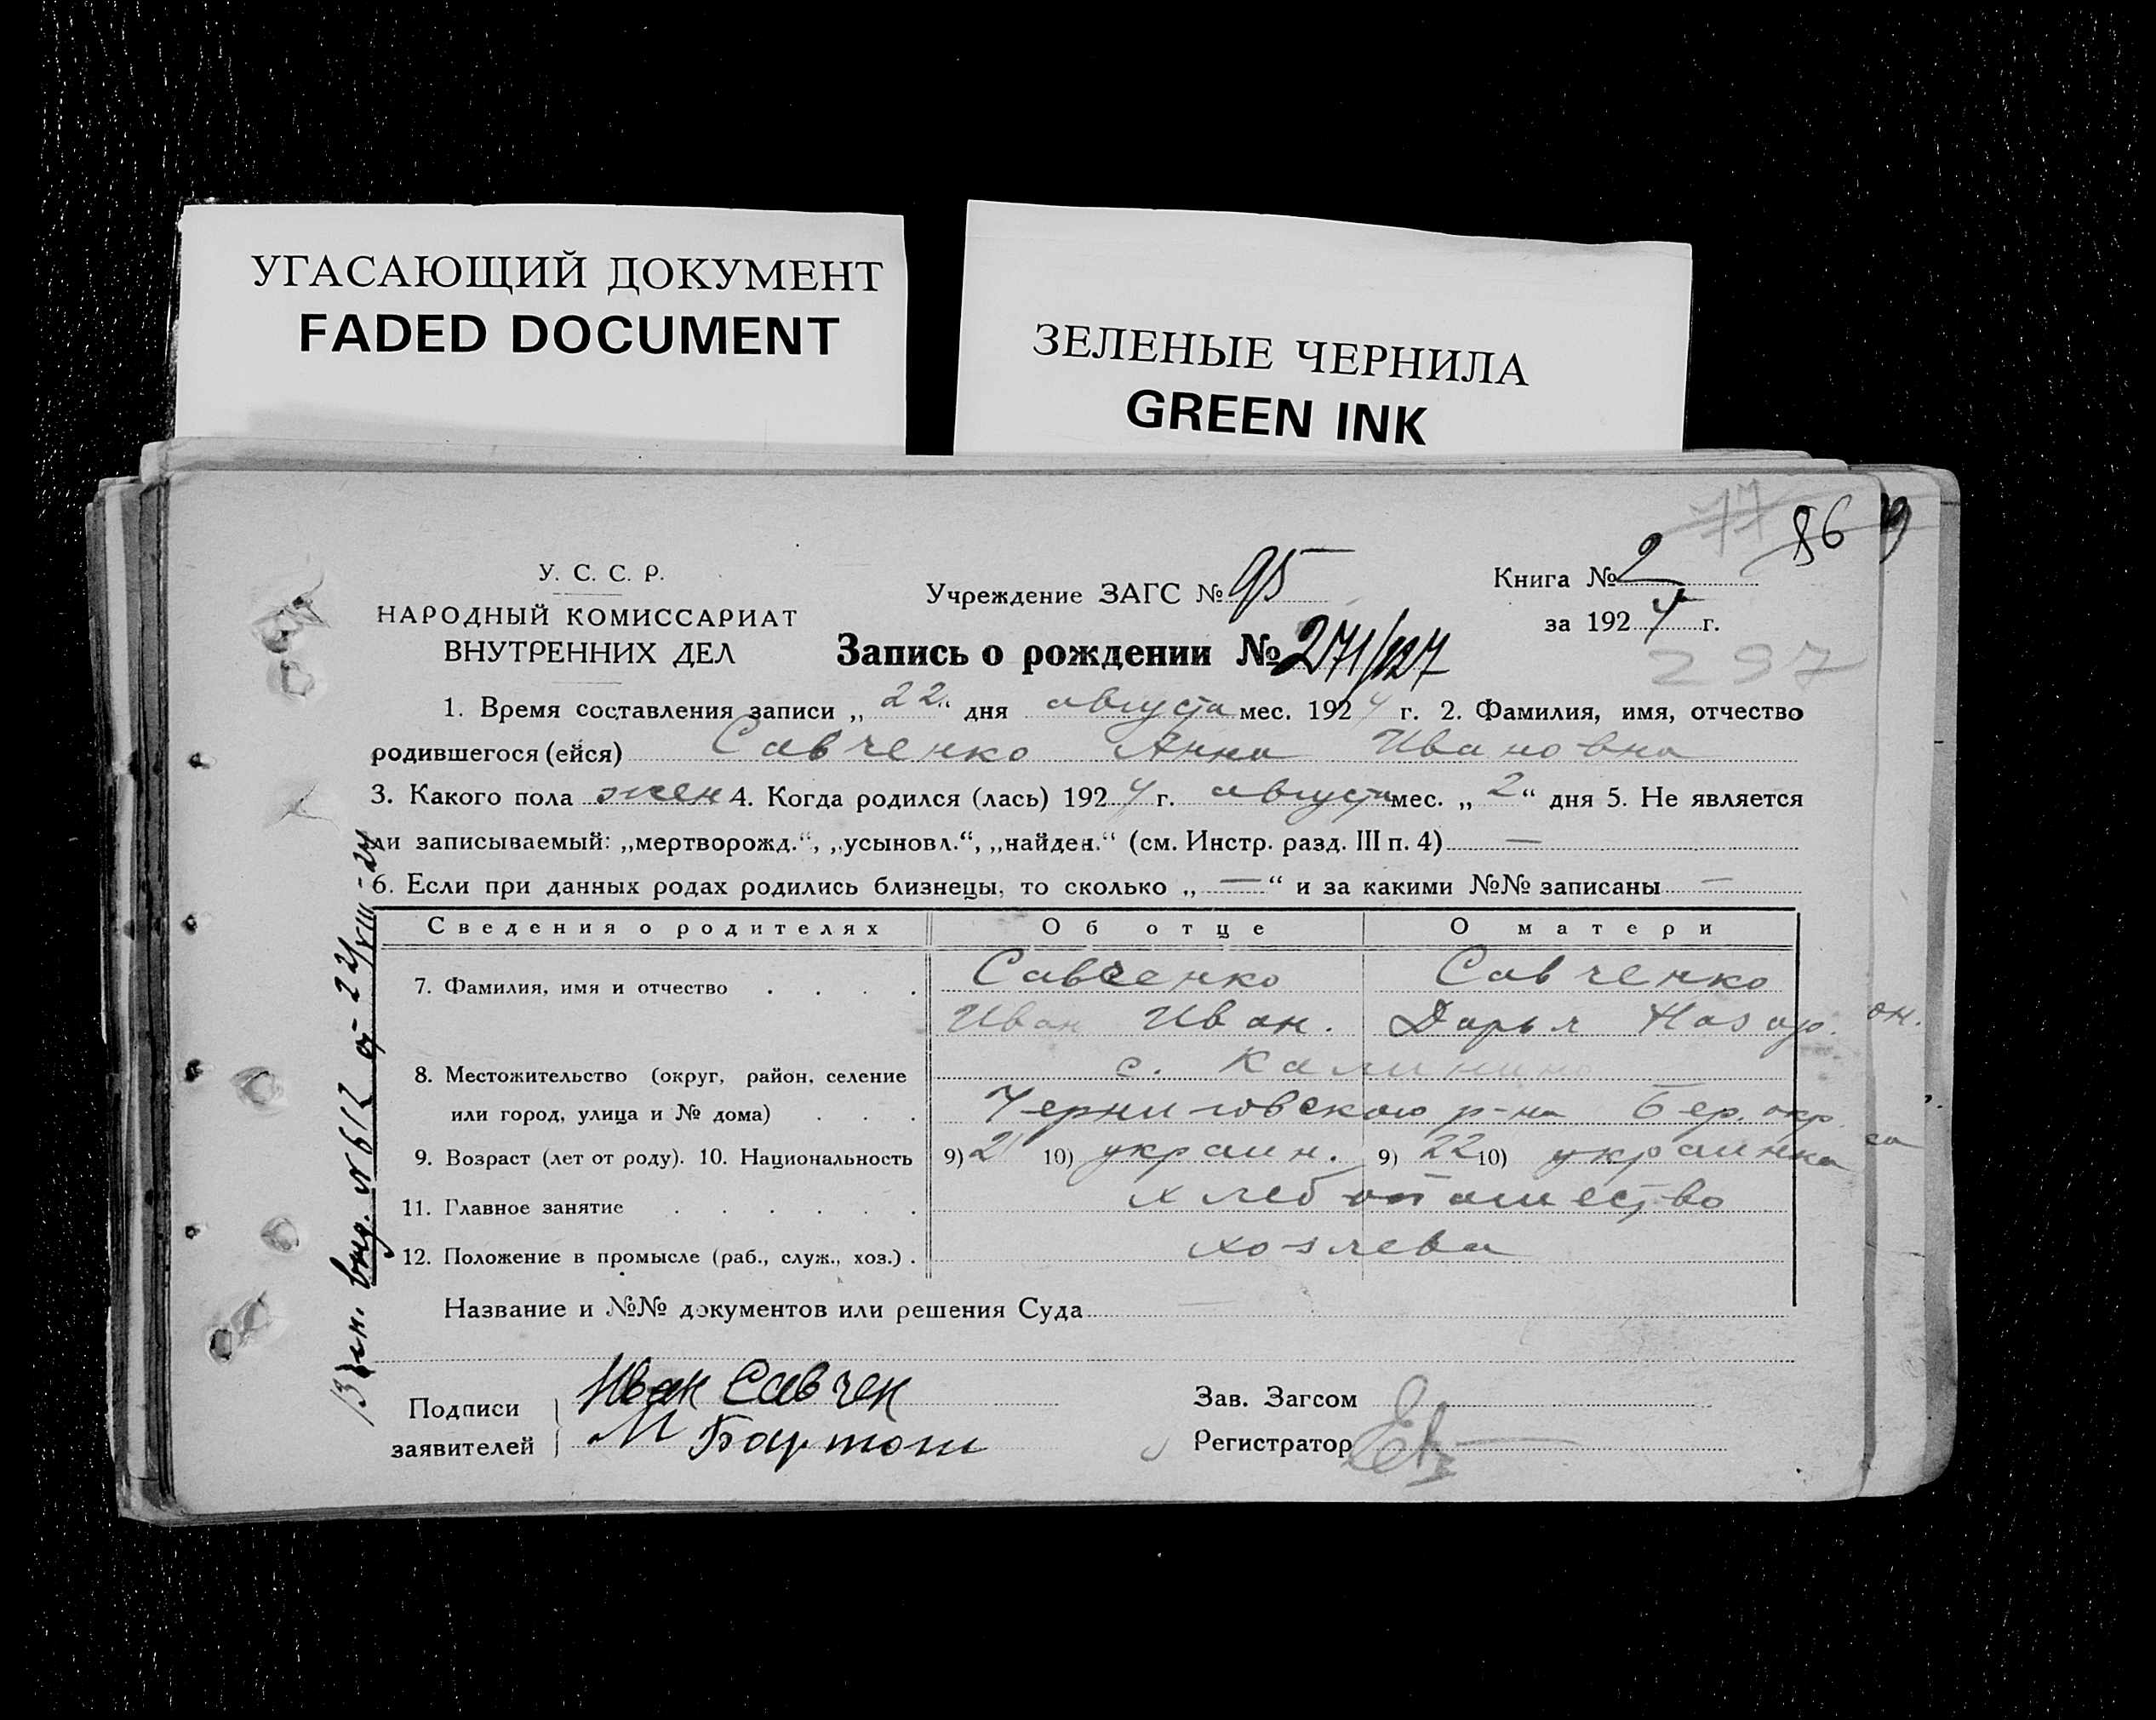 УГАСАЮЩИЙ ДОКУМЕНТ
FADED DOCUMENT
ЗЕЛЕНЫЕ ЧЕРНИЛА
GREEN INK
77 86
У. С. С. Р.
НАРОДНЫЙ КОМИССАРИАТ
ВНУТРЕННИХ ДЕЛ
Учреждение ЗАГС № 95
Книга № 2
за 1924 г.
Запись о рождении № 271/127
297
1. Время составления записи „22“ дня августа мес. 1924 г. 2. Фамилия, имя, отчество
родившегося (ейся) Савченко Анна Ивановна
3. Какого пола жен 4. Когда родился (лась) 1924 г. августа мес. „2“ дня 5. Не является
ли записываемый: „мертворожд.“, „усыновл.“, „найден.“ (см. Инстр. разд. III п. 4) —
6. Если при данных родах родились близнецы, то сколько „—“ и за какими №№ записаны —
Сведения о родителях Об отце О матери
7. Фамилия, имя и отчество . . . . Савченко Савченко
Иван Иван. Дарья Назар.
8. Местожительство (округ, район, селение с. Калинино
или город, улица и № дома) . . . Черниговского р-на Бер. окр.
9. Возраст (лет от роду). 10. Национальность 9) 21 10) украин. 9) 22 10) украинка
11. Главное занятие . . . . . . хлебопашество
12. Положение в промысле (раб., служ., хоз.) . хозяева
Название и №№ документов или решения Суда
Подписи
заявителей
Иван Савчен
М Бартош
Зав. Загсом
Регистратор
выд. № 612 от 22/VIII-24